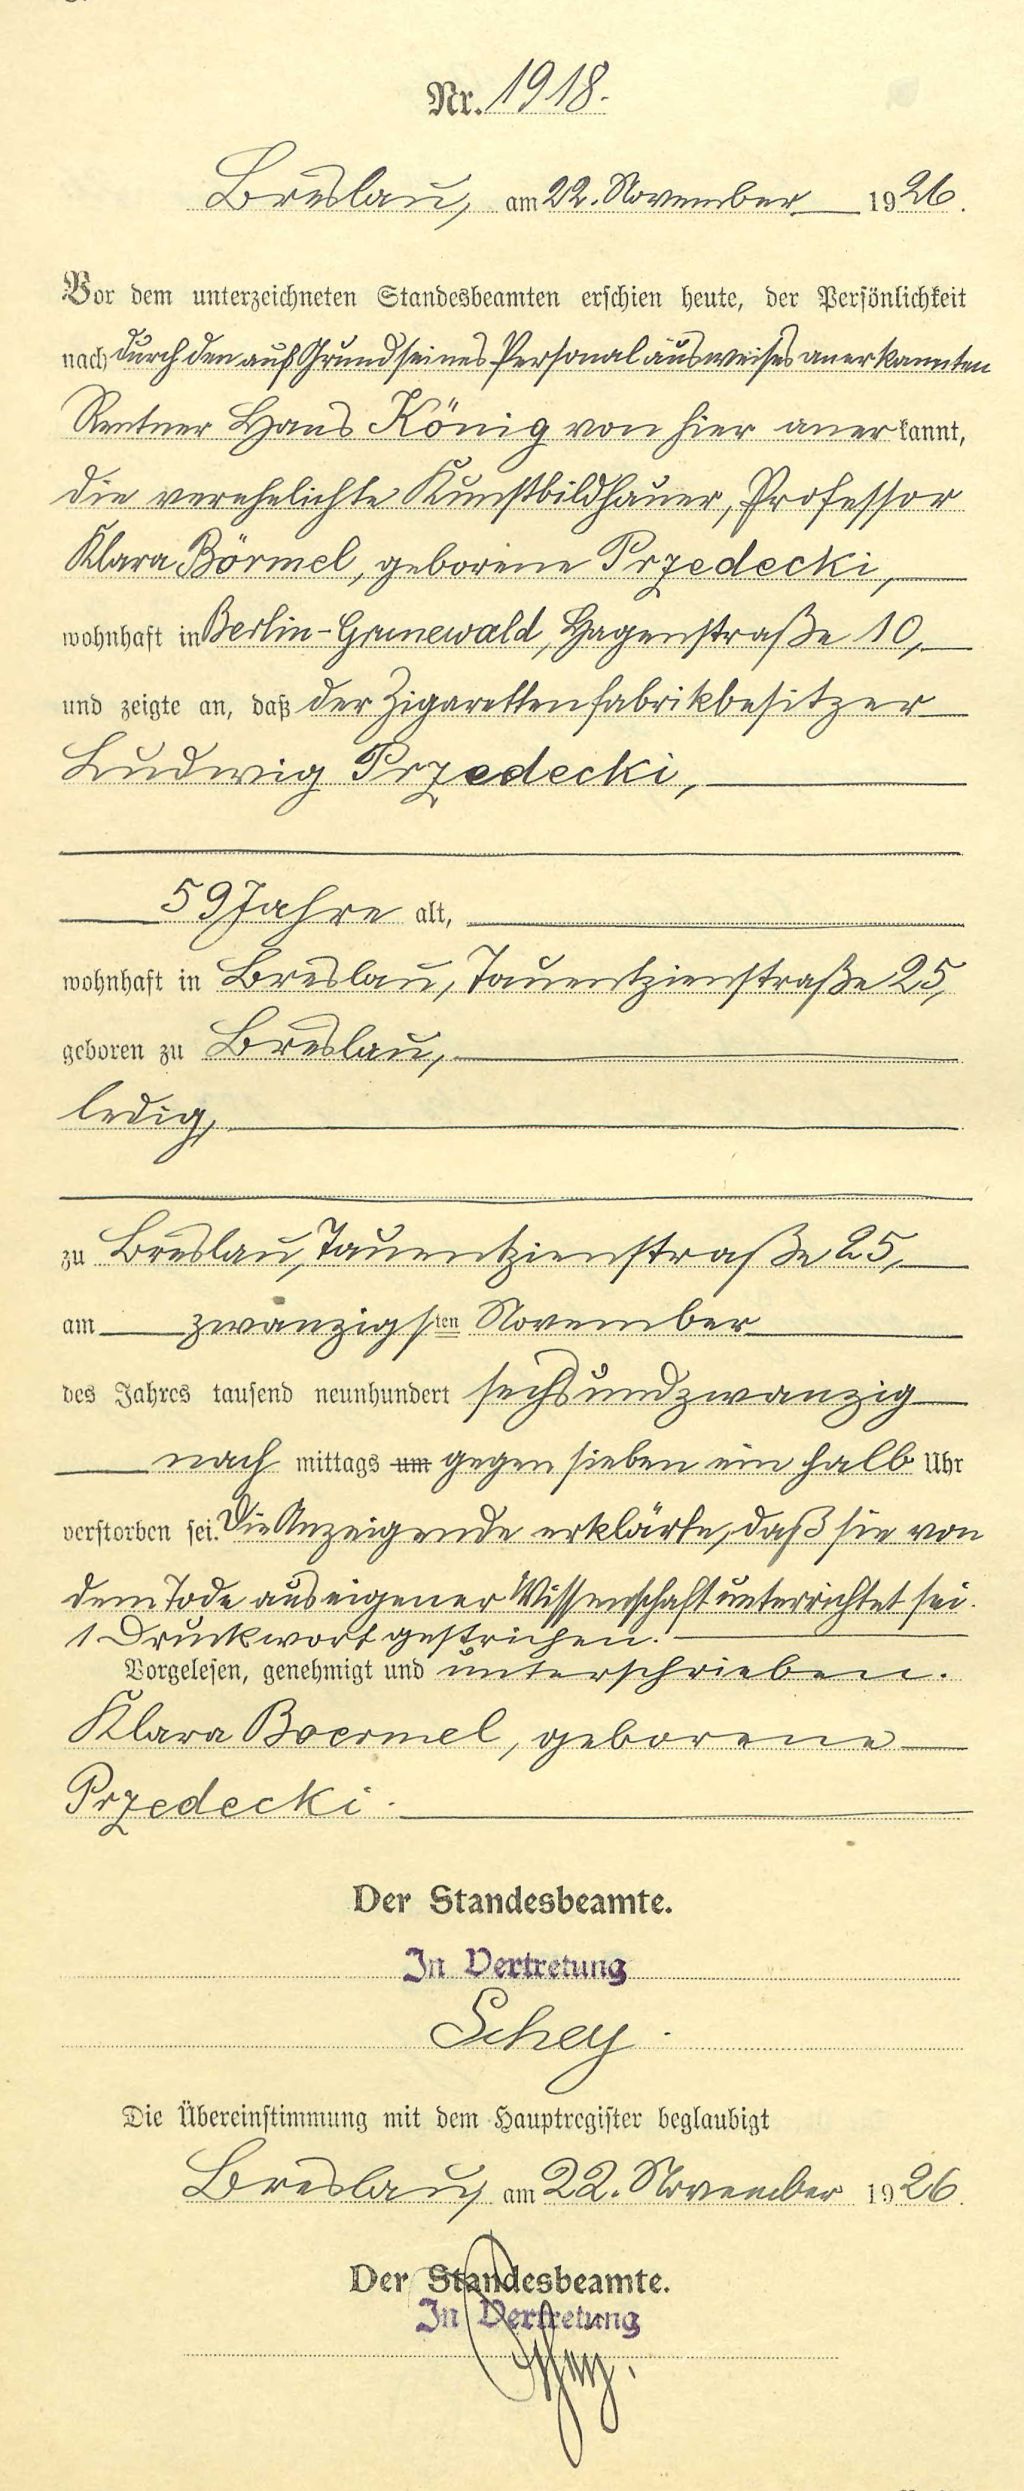 Nr. 1918.
Breslau, am 22. November 1926.
Vor dem unterzeichneten Standesbeamten erschien heute, der Persönlichkeit
nach durch den auf Grund seines Personalausweises anerkannten
Rentner Hans König von hier anerkannt,
die verehelichte Kunstbildhauer, Professor
Klara Börmel, geborene Przedecki,
wohnhaft in Berlin-Grunewald, Hagenstraße 10,
und zeigte an, daß der Zigarettenfabrikbesitzer
Ludwig Przedecki,
59 Jahre alt,
wohnhaft in Breslau, Tauentzienstraße 25,
geboren zu Breslau,
ledig,
zu Breslau, Tauentzienstraße 25,
am zwanzigsten November
des Jahres tausend neunhundert sechsundzwanzig
nach mittags um gegen sieben ein halb Uhr
verstorben sei. Die Anzeigende erklärte, daß sie von
dem Tode aus eigener Wissenschaft unterrichtet sei.
1 Druckwort gestrichen.
Vorgelesen, genehmigt und unterschrieben.
Klara Boermel, geborene
Przedecki.
Der Standesbeamte.
In Vertretung
Schey.
Die Übereinstimmung mit dem Hauptregister beglaubigt
Breslau, am 22. November 1926.
Der Standesbeamte.
In Vertretung
Schey.